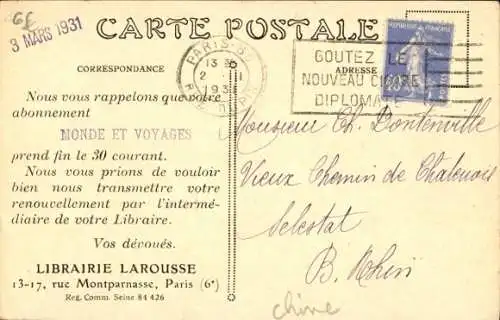 3 MARS 1931
CARTE POSTALE
CORRESPONDANCE
ADRESSE
Nous vous rappelons que votre
abonnement
MONDE ET VOYAGES
prend fin le 30 courant.
Nous vous prions de vouloir
bien nous transmettre votre
renouvellement par l'intermé-
diaire de votre Libraire.
Vos dévoués.
LIBRAIRIE LAROUSSE
13-17, rue Montparnasse, Paris (6e)
Reg. Comm. Seine 84 426
PARIS
13
2
193
GOUTEZ LE
NOUVEAU CIGARE
DIPLOMATE
Monsieur Ch. Dontenville
Vieux Chemin de Chatenois
Selestat
B. Rhin
Chine